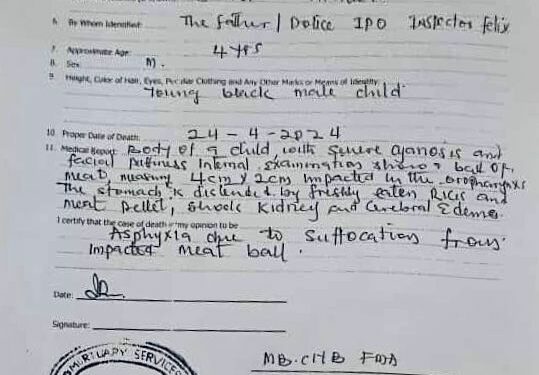 6. By Whom Identified: The father / Police IPO Inspector felix
7. Approximate Age: 4 yrs
8. Sex M.
9. Height, Color of Hair, Eyes, Peculiar Clothing and Any Other Marks or Means of Identity:
Young black male child
10. Proper Date of Death: 24-4-2024
11. Medical Report: Body of a child with severe cyanosis and
facial puffiness Internal examination shows ball of
meat, measuring 4cm x 2cm impacted in the oropharynx
The stomach is distended by freshly eaten Rice and
meat pellet, shock kidney and Cerebral Edema.
I certify that the case of death in my opinion to be
Asphyxia due to Suffocation from
Impacted meat ball.
Date:
Signature:
MORTUARY SERVICES
MB.CHB